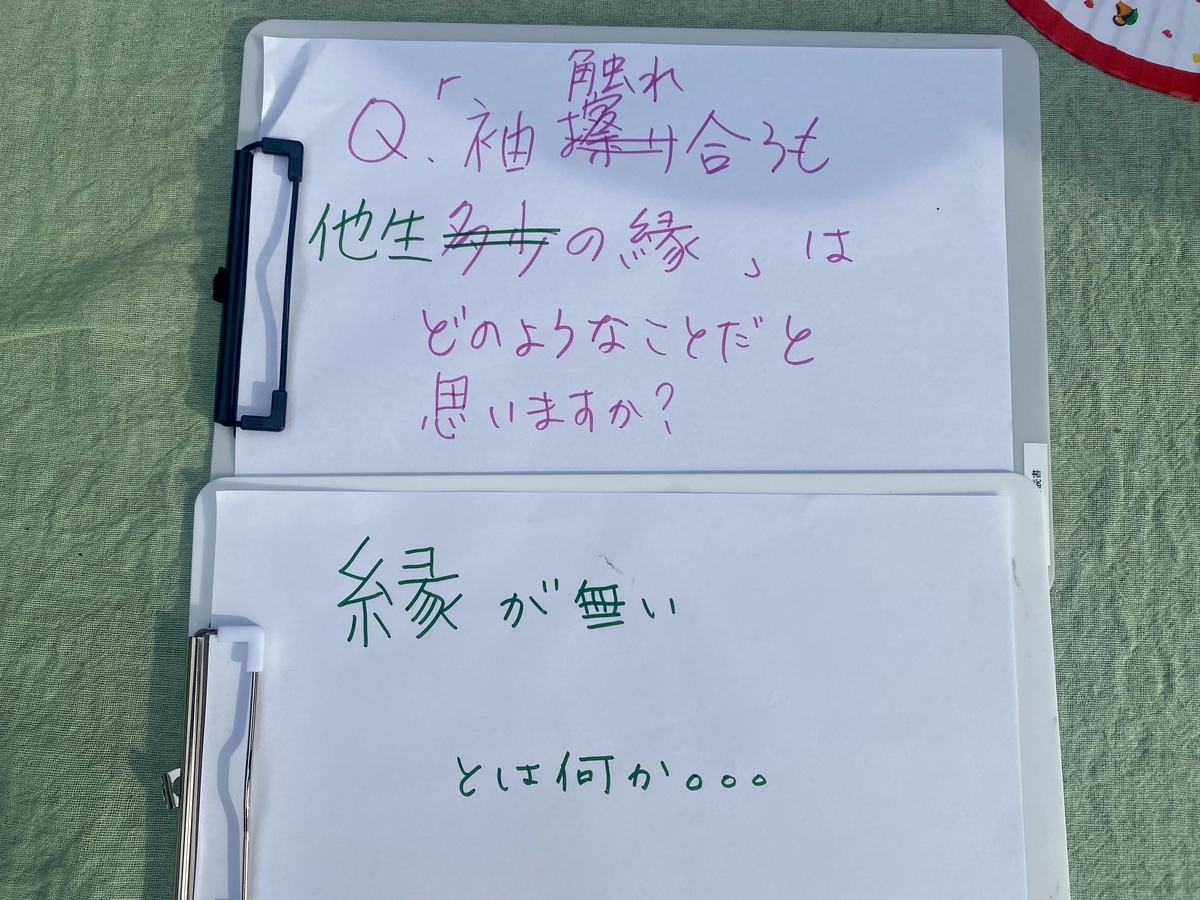 触れ
Q.「袖擦り合うも
他生多少の縁」は
どのようなことだと
思いますか?
縁が無い
とは何か。。。